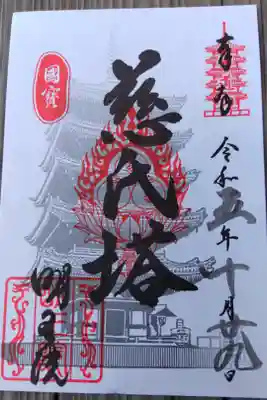 奉拝
令和五年十月廿九日
慈氏塔
國寶
明王院